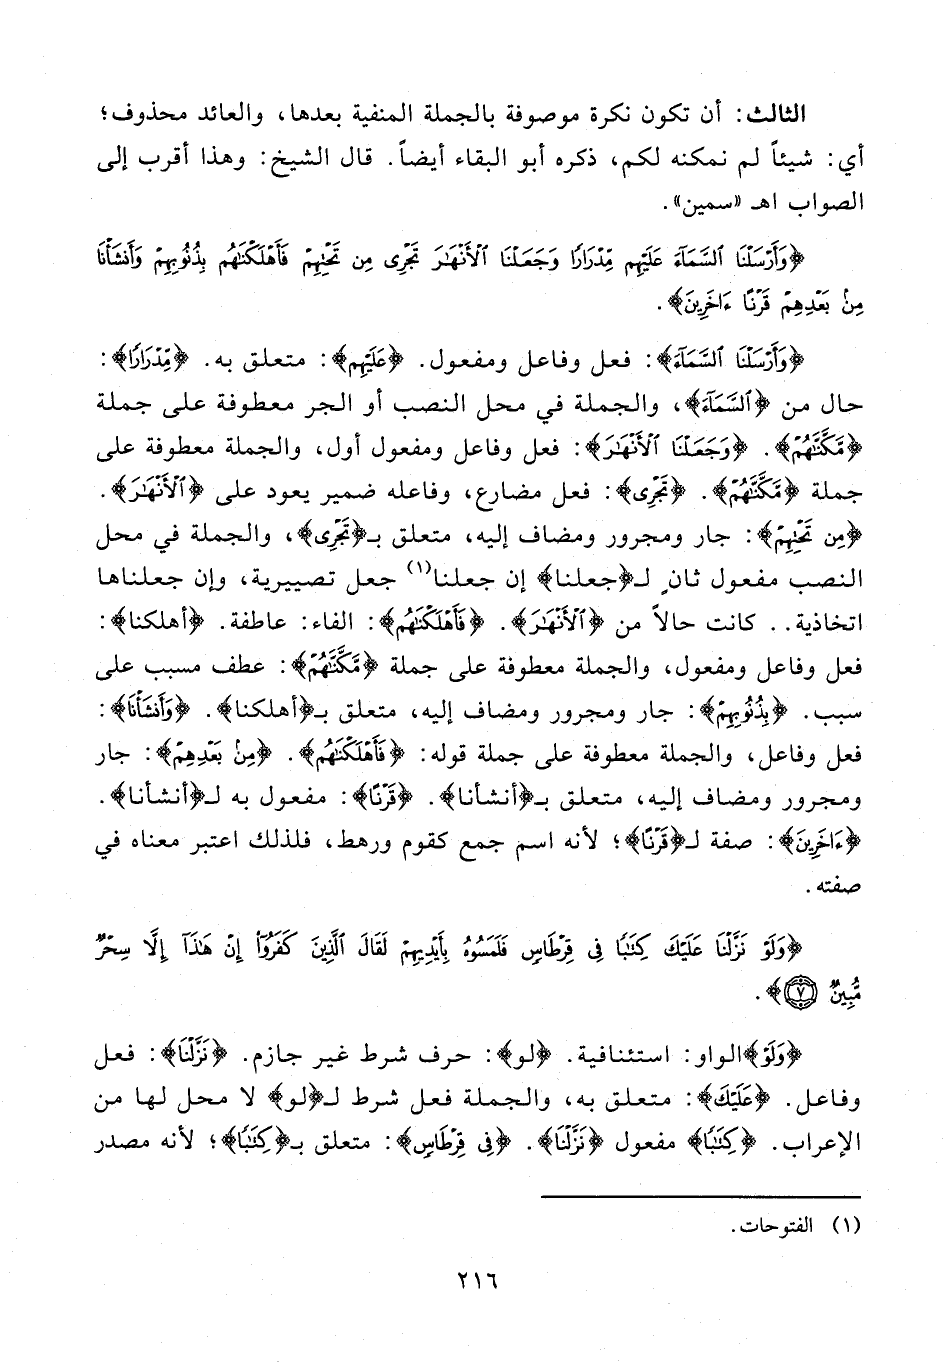 الثالث: أن تكون نكرة موصوفة بالجملة المنفية بعدها، والعائد محذوف؛
أي: شيئاً لم نمكنه لكم، ذكره أبو البقاء أيضاً. قال الشيخ: وهذا أقرب إلى
الصواب اهـ «سمين».
﴿وَأَرْسَلْنَا ٱلسَّمَآءَ عَلَيْهِم مِّدْرَارًا وَجَعَلْنَا ٱلْأَنْهَٰرَ تَجْرِى مِن تَحْتِهِمْ فَأَهْلَكْنَٰهُم بِذُنُوبِهِمْ وَأَنشَأْنَا
مِنۢ بَعْدِهِمْ قَرْنًا ءَاخَرِينَ﴾.
﴿وَأَرْسَلْنَا ٱلسَّمَآءَ﴾: فعل وفاعل ومفعول. ﴿عَلَيْهِم﴾: متعلق به. ﴿مِّدْرَارًا﴾:
حال من ﴿ٱلسَّمَآءَ﴾، والجملة في محل النصب أو الجر معطوفة على جملة
﴿مَّكَّنَّٰهُمْ﴾. ﴿وَجَعَلْنَا ٱلْأَنْهَٰرَ﴾: فعل وفاعل ومفعول أول، والجملة معطوفة على
جملة ﴿مَّكَّنَّٰهُمْ﴾. ﴿تَجْرِى﴾: فعل مضارع، وفاعله ضمير يعود على ﴿ٱلْأَنْهَٰرَ﴾.
﴿مِن تَحْتِهِمْ﴾: جار ومجرور ومضاف إليه، متعلق بـ﴿تَجْرِى﴾، والجملة في محل
النصب مفعول ثانٍ لـ﴿جعلنا﴾ إن جعلنا(١) جعل تصييرية، وإن جعلناها
اتخاذية.. كانت حالاً من ﴿ٱلْأَنْهَٰرَ﴾. ﴿فَأَهْلَكْنَٰهُم﴾: الفاء: عاطفة. ﴿أهلكنا﴾:
فعل وفاعل ومفعول، والجملة معطوفة على جملة ﴿مَّكَّنَّٰهُمْ﴾: عطف مسبب على
سبب. ﴿بِذُنُوبِهِمْ﴾: جار ومجرور ومضاف إليه، متعلق بـ﴿أهلكنا﴾. ﴿وَأَنشَأْنَا﴾:
فعل وفاعل، والجملة معطوفة على جملة قوله: ﴿فَأَهْلَكْنَٰهُم﴾. ﴿مِنۢ بَعْدِهِمْ﴾: جار
ومجرور ومضاف إليه، متعلق بـ﴿أنشأنا﴾. ﴿قَرْنًا﴾: مفعول به لـ﴿أنشأنا﴾.
﴿ءَاخَرِينَ﴾: صفة لـ﴿قَرْنًا﴾؛ لأنه اسم جمع كقوم ورهط، فلذلك اعتبر معناه في
صفته.
﴿وَلَوْ نَزَّلْنَا عَلَيْكَ كِتَٰبًا فِى قِرْطَاسٍ فَلَمَسُوهُ بِأَيْدِيهِمْ لَقَالَ ٱلَّذِينَ كَفَرُوٓا۟ إِنْ هَٰذَآ إِلَّا سِحْرٌ
مُّبِينٌ ٧﴾.
﴿وَلَوْ﴾الواو: استئنافية. ﴿لو﴾: حرف شرط غير جازم. ﴿نَزَّلْنَا﴾: فعل
وفاعل. ﴿عَلَيْكَ﴾: متعلق به، والجملة فعل شرط لـ﴿لو﴾ لا محل لها من
الإعراب. ﴿كِتَٰبًا﴾ مفعول ﴿نَزَّلْنَا﴾. ﴿فِى قِرْطَاسٍ﴾: متعلق بـ﴿كِتَٰبًا﴾؛ لأنه مصدر
(١) الفتوحات.
٢١٦